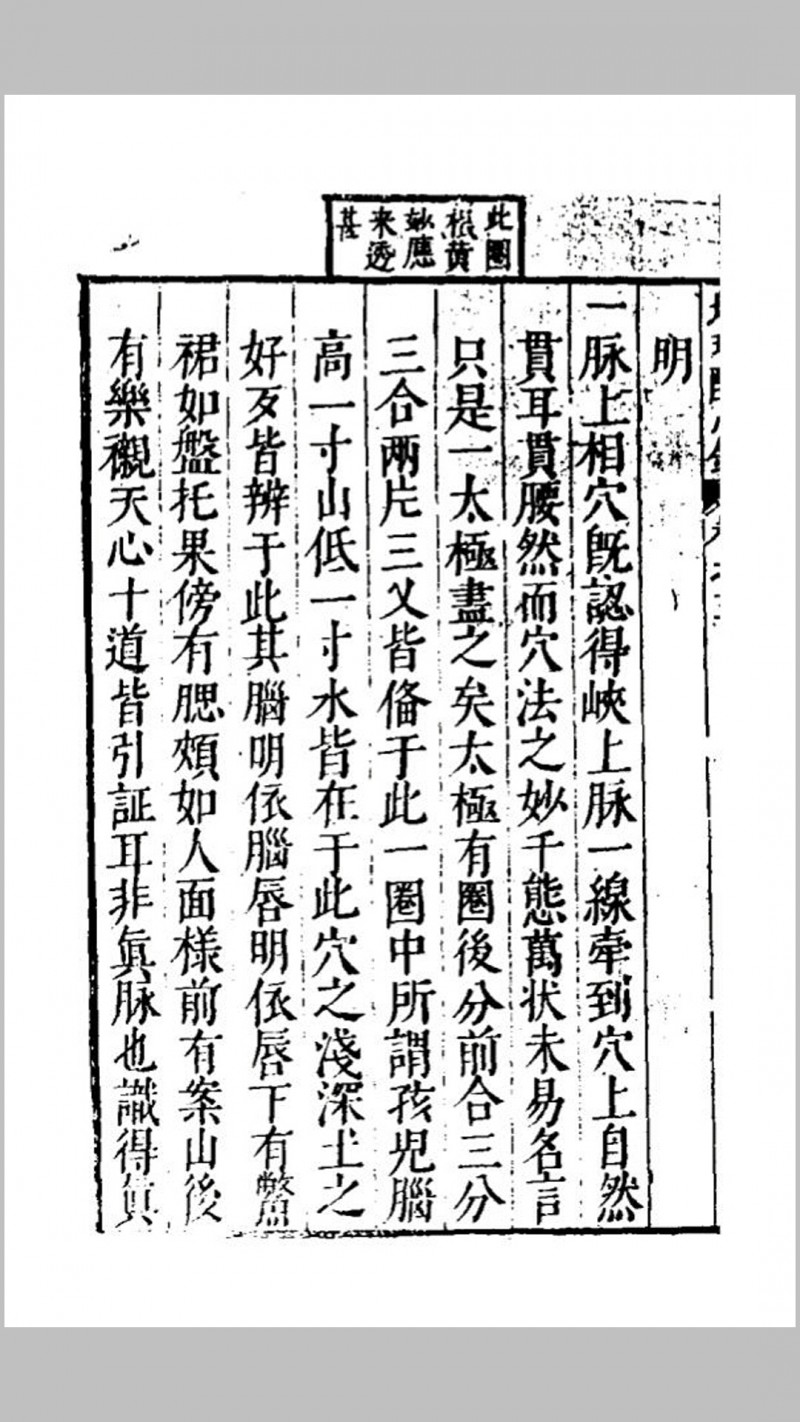 此圈
根黄
妙應
来透
甚
明
一脉上相穴既認得峽上脉一線牽到穴上自然
貫耳貫腰然而穴法之妙千態萬狀未易名言
只是一太極盡之矣太極有圈後分前合三分
三合兩片三乂皆俻于此一圈中所謂孩児腦
高一寸山低一寸水皆在于此穴之淺深土之
好歹皆辨于此其腦明依腦唇明依唇下有
裙如盤托果傍有腮頰如人面樣前有案山後
有樂襯天心十道皆引証耳非眞脉也識得眞